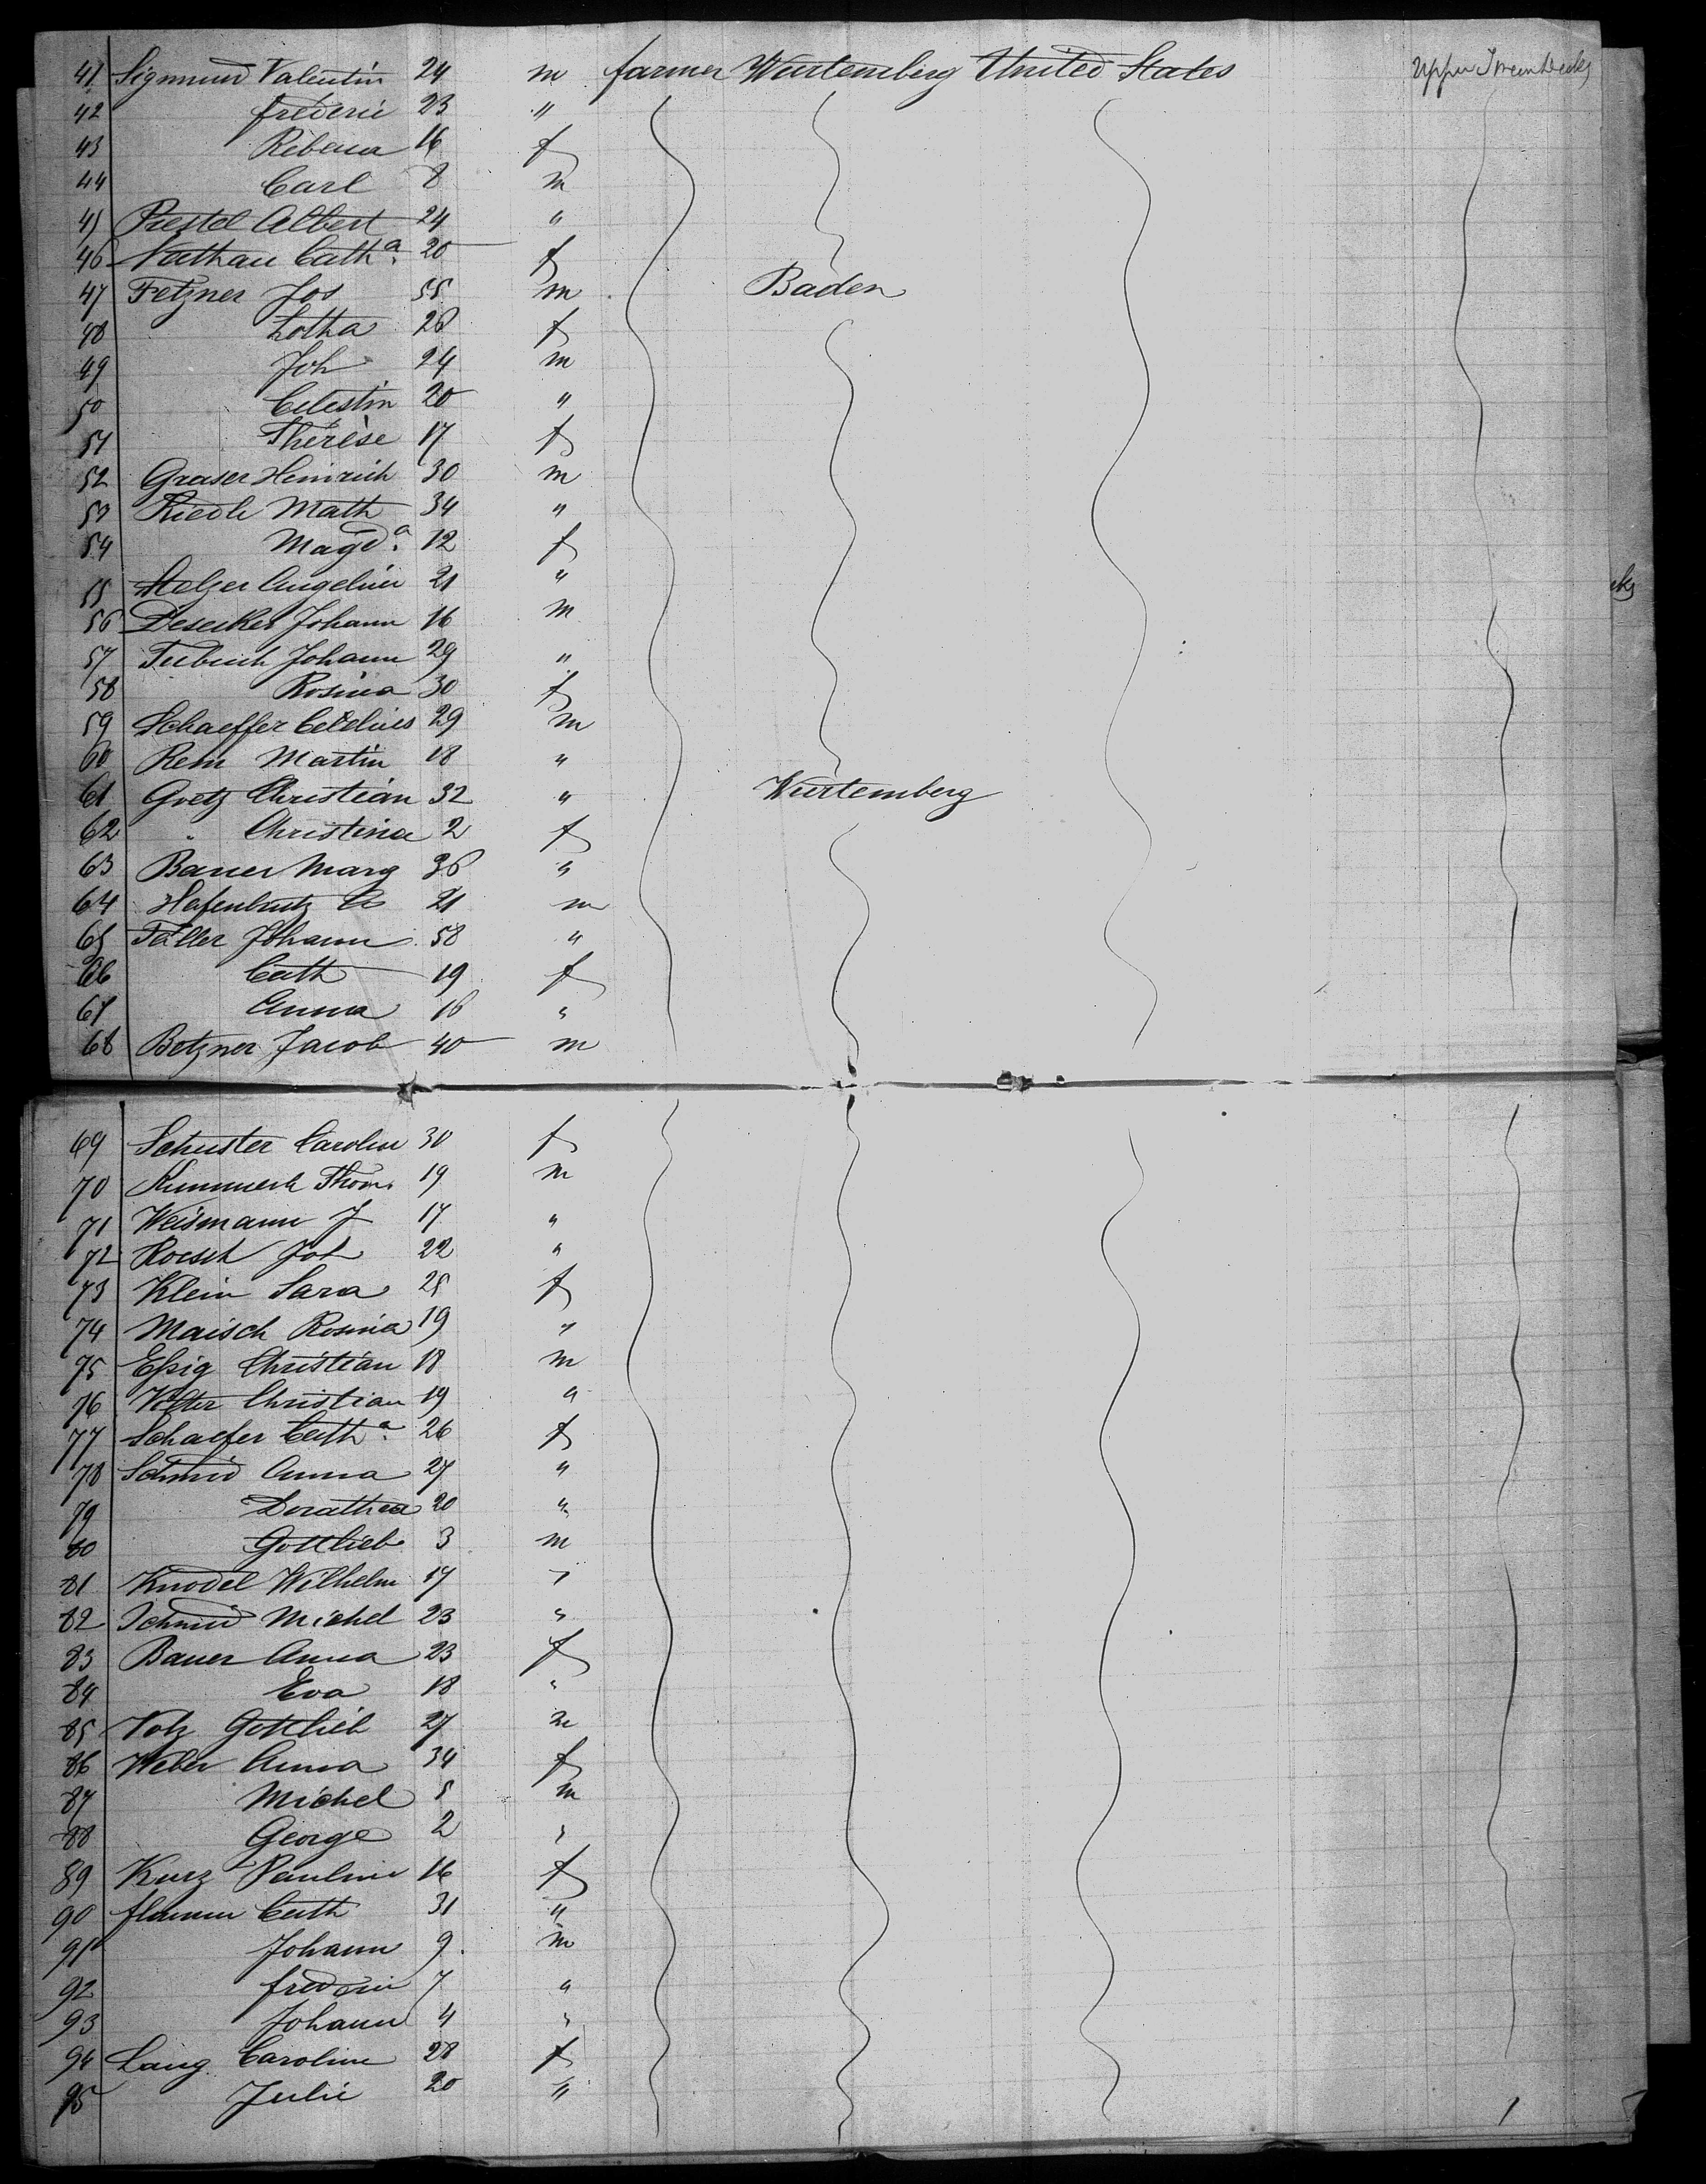 41 Sigmund Valentin 24 m farmer Wurtemberg United States Upper
42 frederic 23 "
43 16 f
44 Carl 8 m
45 Prestel Albert 24 "
46 Nathan Cathª. 20 f
47 Fetzner Jos 55 m Baden
48 Lotha 28 f
49 Joh 24 m
50 Celestin 20 "
51 Thérèse 17 f
52 Graser Heinrich 30 m
53 Riedle Math 34 "
54 Magdª. 12 f
55 Melzer Angeline 21 "
56 Johann 16 m
57 Johann 29 "
58 Rosina 30 f
59 Schaeffer 29 m
60 Rem Martin 18 "
61 Goetz Christian 32 " Wurtemberg
62 " Christina 2 f
63 Bauer Marg 36 "
64 21 m
65 Faller Johann 58 "
66 Cath 19 f
67 Anna 16 "
68 Betzner Jacob 40 m
69 Schuster Carolin 30 f
70 Kummerle Thom. 19 m
71 Weismann J 17 "
72 Roesch Joh 22 "
73 Klein Sara 25 f
74 Maisch Rosina 19 "
75 Eßig Christian 18 m
76 Christian 19 "
77 Schaefer Cathª. 26 f
78 Schmid Anna 27 "
79 Dorathea 20 "
80 Gottlieb 3 m
81 Knodel Wilhelm 17 "
82 Schmid Michel 23 "
83 Bauer Anna 23 f
84 Eva 18 "
85 Volz Gottlieb 27 m
86 Weber Anna 34 f
87 Michel 5 m
88 George 2 "
89 Kurz Pauline 16 f
90 Cath 31 "
91 Johann 9 m
92 frederic 7 "
93 Johann 4 "
94 Lang Caroline 28 f
95 Julie 20 "